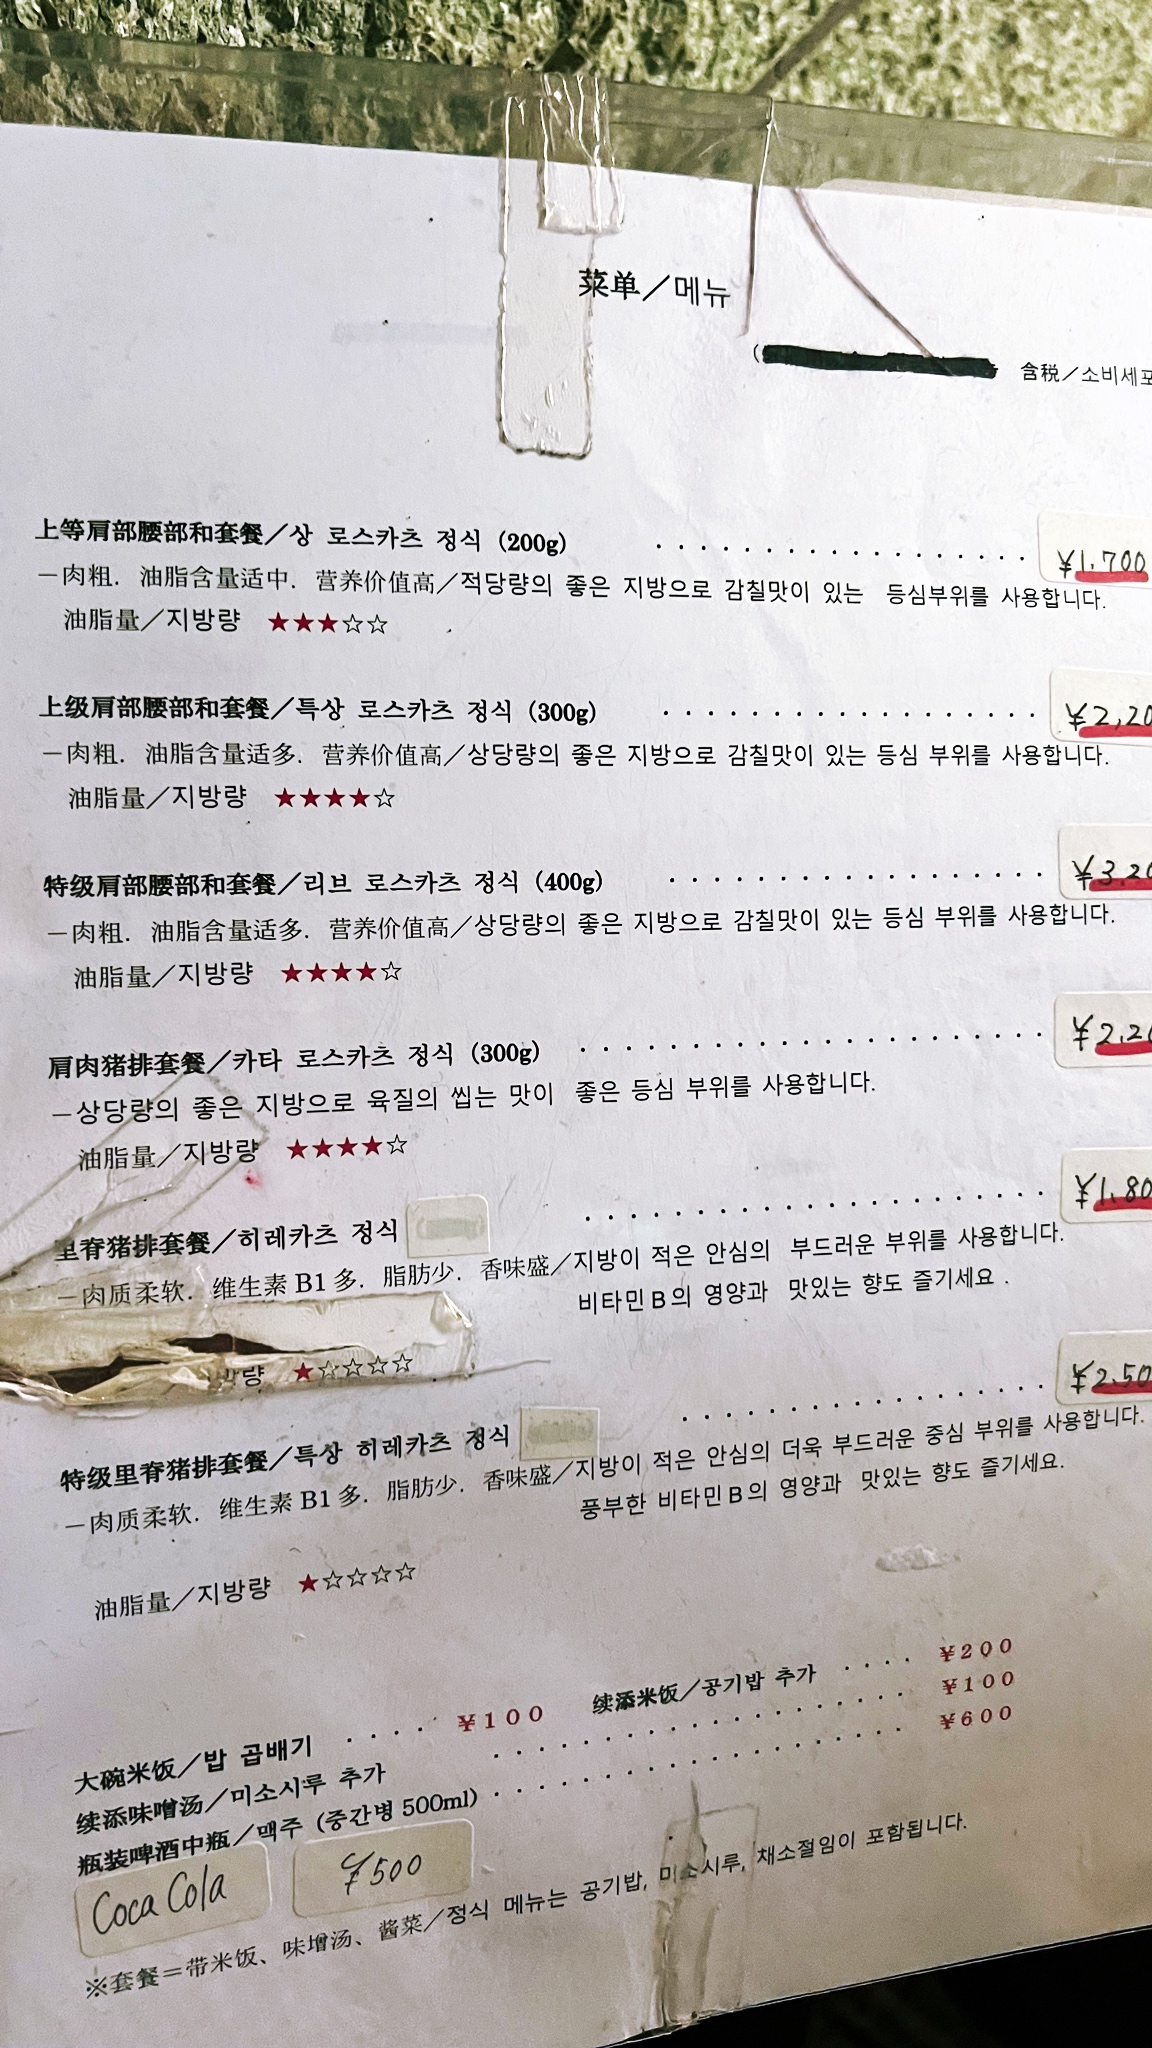 菜单／메뉴
( 含税／소비세포
上等肩部腰部和套餐／상 로스카츠 정식 (200g) . . . . . . . . . . . . . . . . . . ¥1,700
－肉粗．油脂含量适中．营养价值高／적당량의 좋은 지방으로 감칠맛이 있는 등심부위를 사용합니다.
油脂量／지방량 ★★★☆☆
上级肩部腰部和套餐／특상 로스카츠 정식 (300g) . . . . . . . . . . . . . . . . . . ¥2,20
－肉粗．油脂含量适多．营养价值高／상당량의 좋은 지방으로 감칠맛이 있는 등심 부위를 사용합니다.
油脂量／지방량 ★★★★☆
特级肩部腰部和套餐／리브 로스카츠 정식 (400g) . . . . . . . . . . . . . . . . . . ¥3,20
－肉粗．油脂含量适多．营养价值高／상당량의 좋은 지방으로 감칠맛이 있는 등심 부위를 사용합니다.
油脂量／지방량 ★★★★☆
肩肉猪排套餐／카타 로스카츠 정식 (300g) . . . . . . . . . . . . . . . . . . . . . ¥2,20
－상당량의 좋은 지방으로 육질의 씹는 맛이 좋은 등심 부위를 사용합니다.
油脂量／지방량 ★★★★☆
里脊猪排套餐／히레카츠 정식 . . . . . . . . . . . . . . . . . . . . . ¥1,80
－肉质柔软．维生素 B1 多．脂肪少．香味盛／지방이 적은 안심의 부드러운 부위를 사용합니다.
비타민B의 영양과 맛있는 향도 즐기세요 .
량 ★☆☆☆☆
特级里脊猪排套餐／특상 히레카츠 정식 . . . . . . . . . . . . . . . . . ¥2,50
－肉质柔软．维生素 B1 多．脂肪少．香味盛／지방이 적은 안심의 더욱 부드러운 중심 부위를 사용합니다.
풍부한 비타민B의 영양과 맛있는 향도 즐기세요.
油脂量／지방량 ★☆☆☆☆
大碗米饭／밥 곱배기 . . . . ¥100 续添米饭／공기밥 추가 . . . . ¥200
续添味噌汤／미소시루 추가 . . . . . . . . . . . . . . . . . . . ¥100
瓶装啤酒中瓶／맥주 (중간병 500ml) . . . . . . . . . . . . . . . . . . . ¥600
Coca Cola ¥500
※套餐＝带米饭、味增汤、酱菜／정식 메뉴는 공기밥, 미소시루, 채소절임이 포함됩니다.